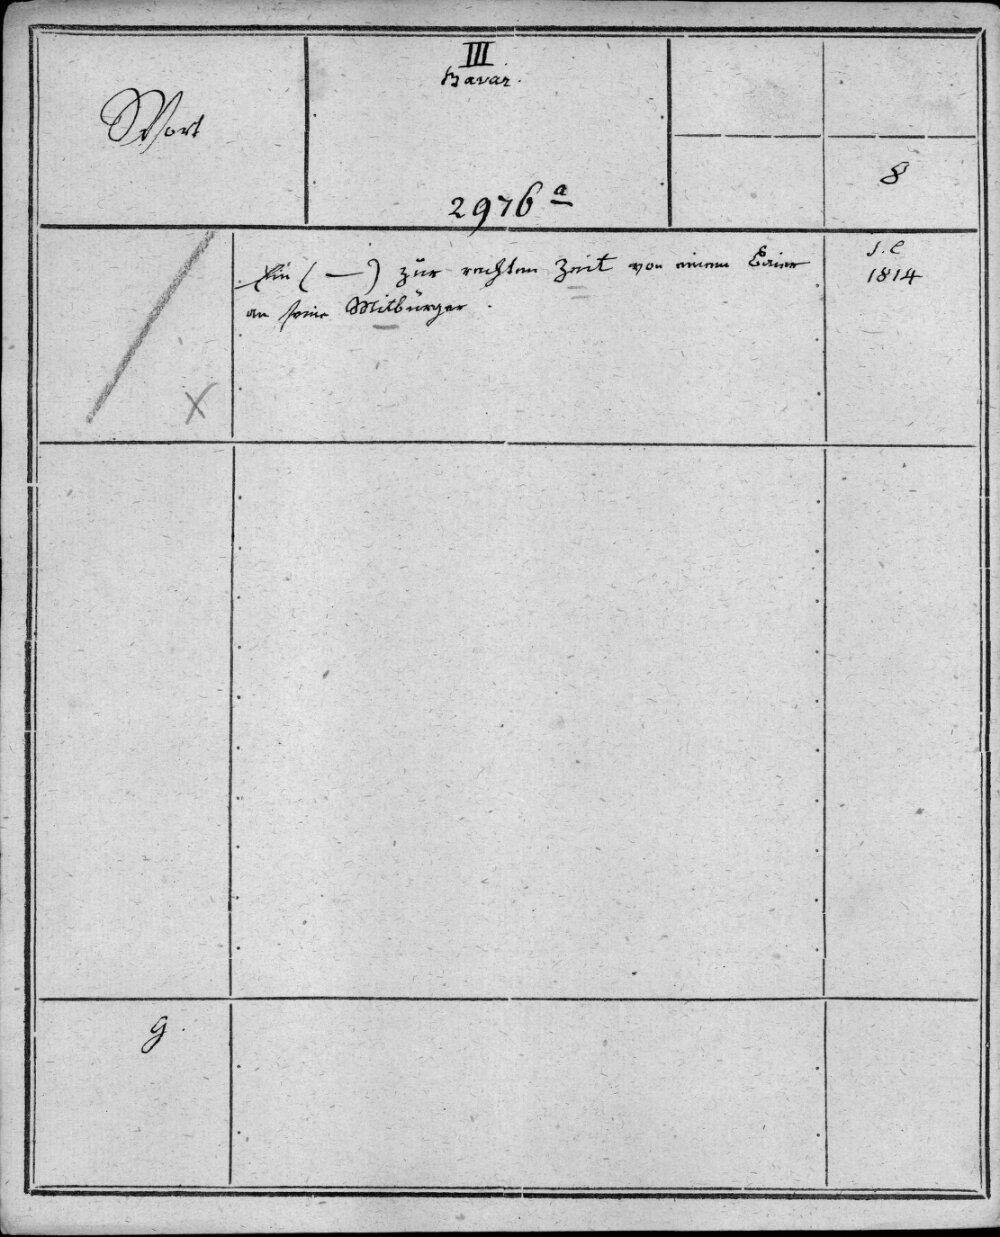 Wort
III
Bavar.
2976 a
8
Ein (—) zur rechten Zeit von einem Baier
an seine Mitbürger.
s. l.
1814
X
g.